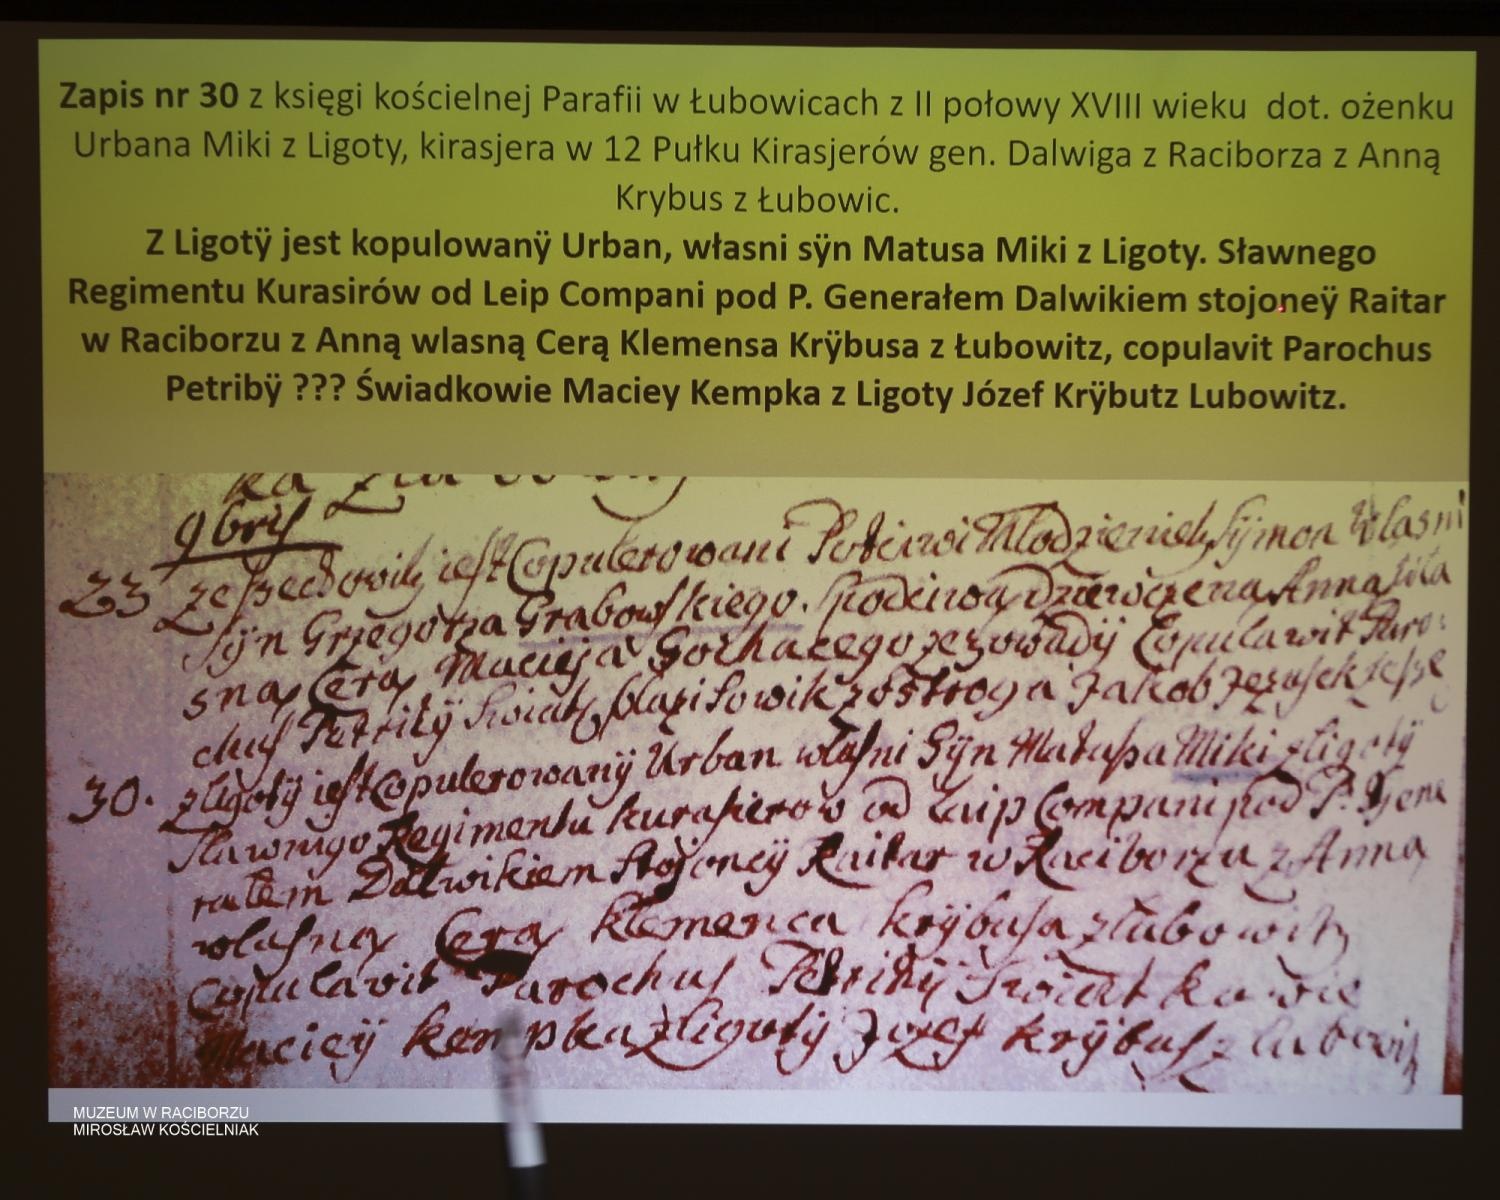 Zapis nr 30 z księgi kościelnej Parafii w Łubowicach z II połowy XVIII wieku dot. ożenku
Urbana Miki z Ligoty, kirasjera w 12 Pułku Kirasjerów gen. Dalwiga z Raciborza z Anną
Krybus z Łubowic.
Z Ligotÿ jest kopulowanÿ Urban, własni sÿn Matusa Miki z Ligoty. Sławnego
Regimentu Kurasirów od Leip Compani pod P. Generałem Dalwikiem stojoneÿ Raitar
w Raciborzu z Anną wlasną Cerą Klemensa Krÿbusa z Łubowitz, copulavit Parochus
Petribÿ ??? Świadkowie Maciey Kempka z Ligoty Józef Krÿbutz Lubowitz.
9bris
23 iest Copulerowani Młodzieniek Sÿmon Własni
Sÿn Grzegorza Grabowskiego. Dziewczena Anna
sną Cerą Macieja Copulavit Paro:
chus Petritÿ Jakob
30. zligotÿ iest Copulerowanÿ Urban własni Sÿn Matusa Miki zligotÿ
Regimentu kurasierow od Leip Compani pod P. Gene
rałem Dalwikiem stojoneÿ Raitar w Raciborzu z Anną
własną Cerą klemenca krÿbusa zlubowitz
Copulavit Parochus Petritÿ Swiatkowie
Macieÿ kempka zligotÿ Jozef krÿbus zlubowitz
MUZEUM W RACIBORZU
MIROSŁAW KOŚCIELNIAK